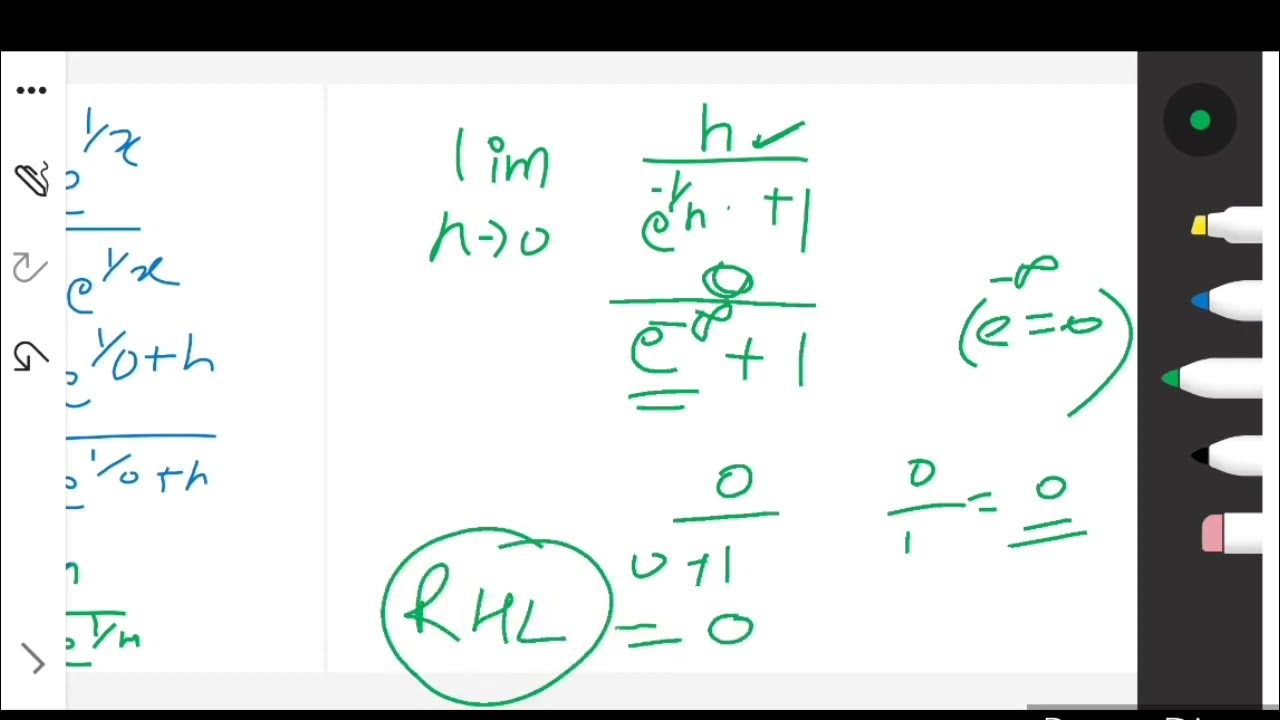 e^1/x
e^1/x
e^1/0+h
e^1/0+h
h
e^1/h
lim h→0 h / e^-1/h + 1
0 / e^-∞ + 1
(e^-∞ = 0)
0 / 0+1
0/1 = 0
RHL = 0